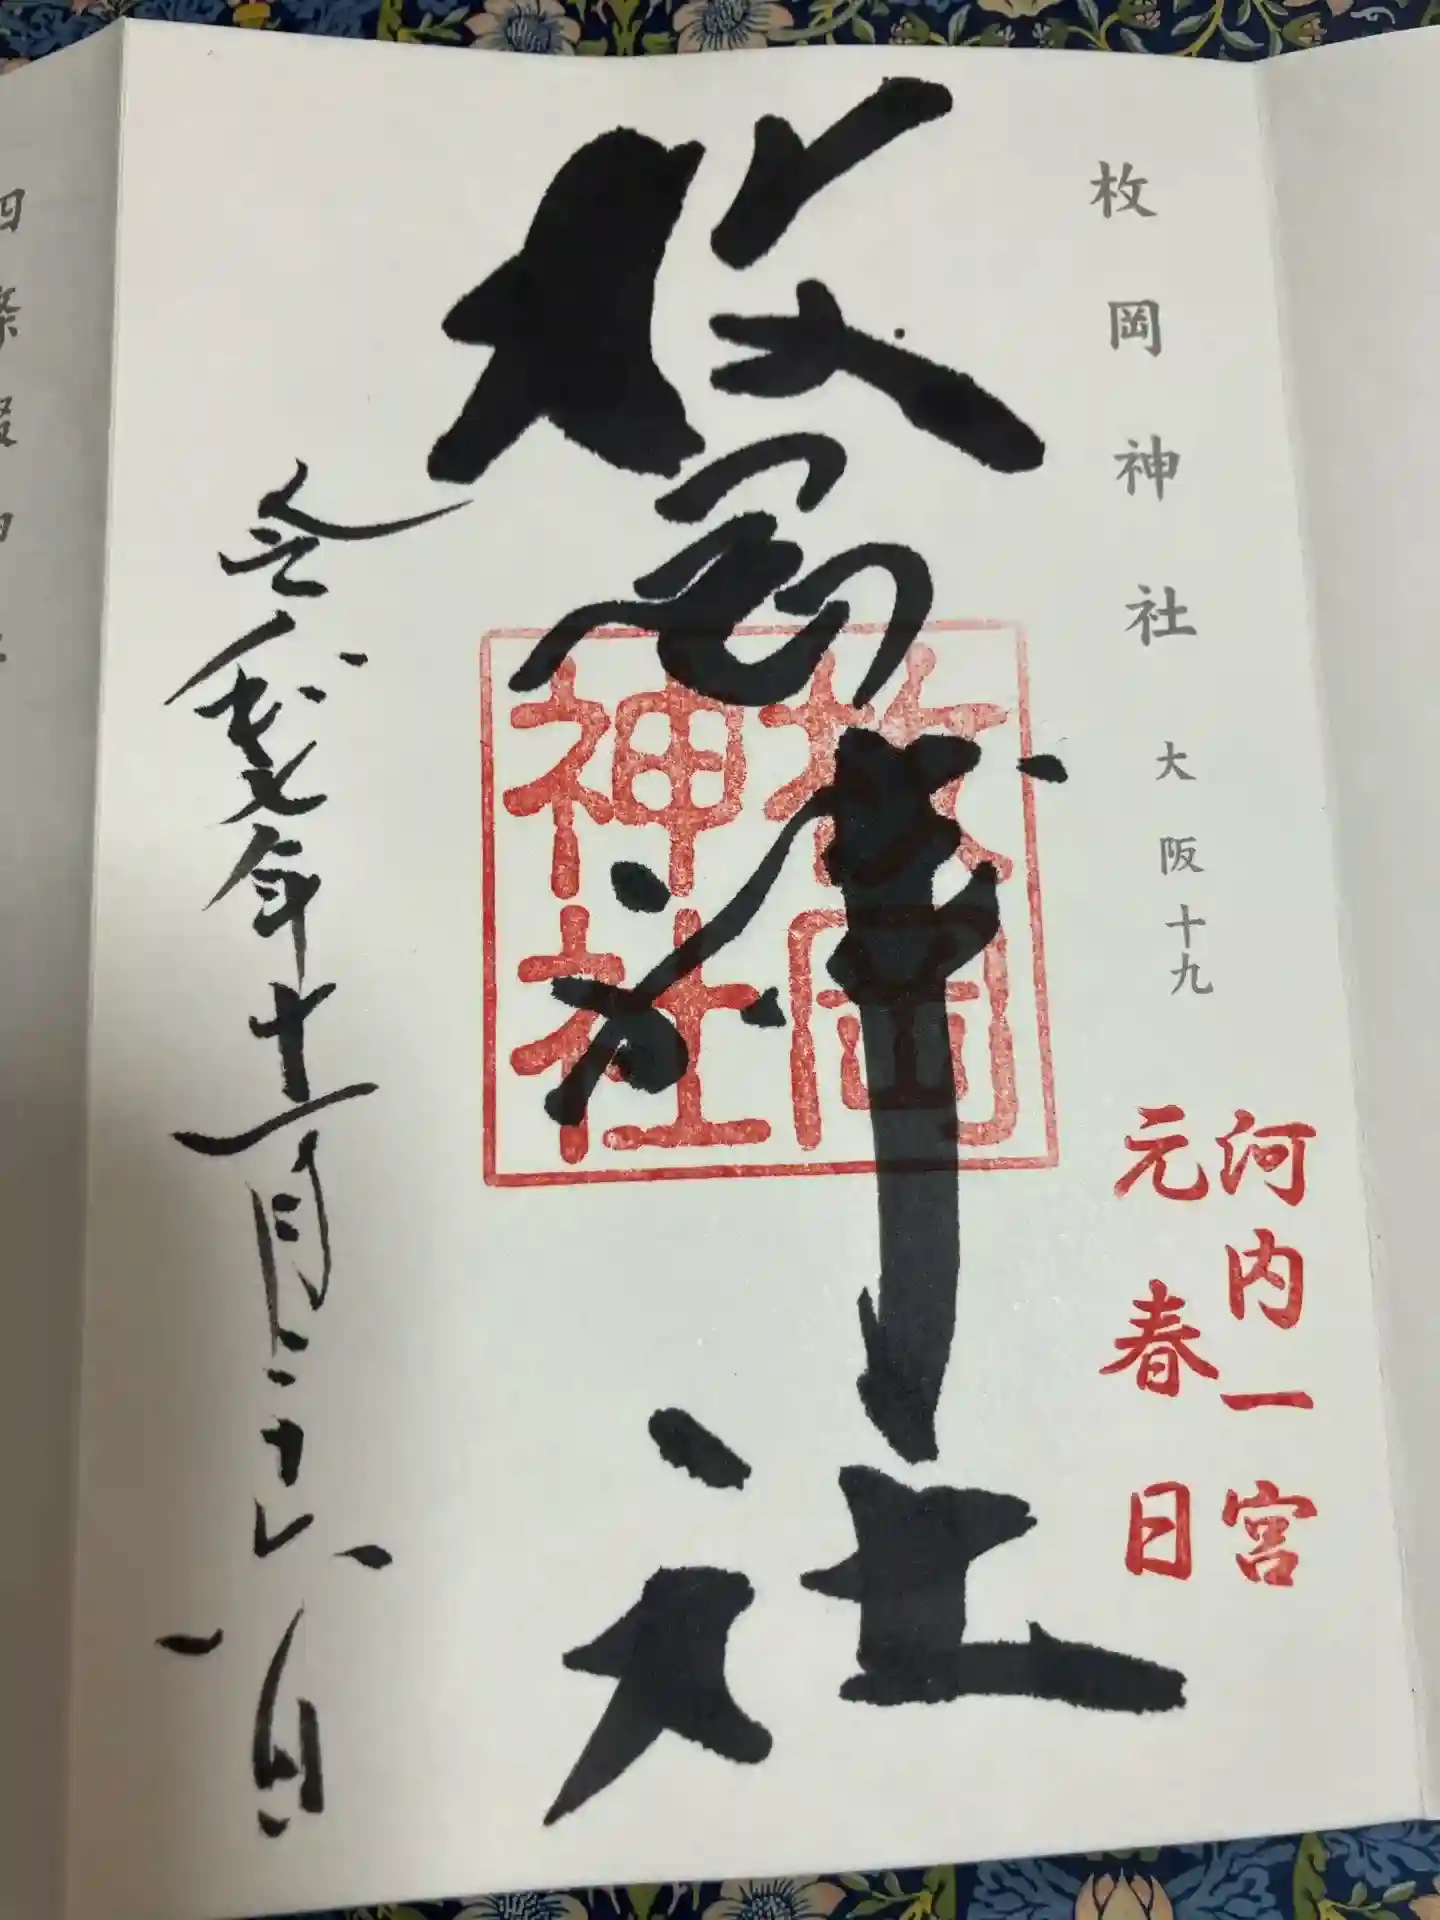 枚岡神社 大阪十九
河内一宮
元春日
枚岡神社
枚岡
神社
令和七年十一月二十六日